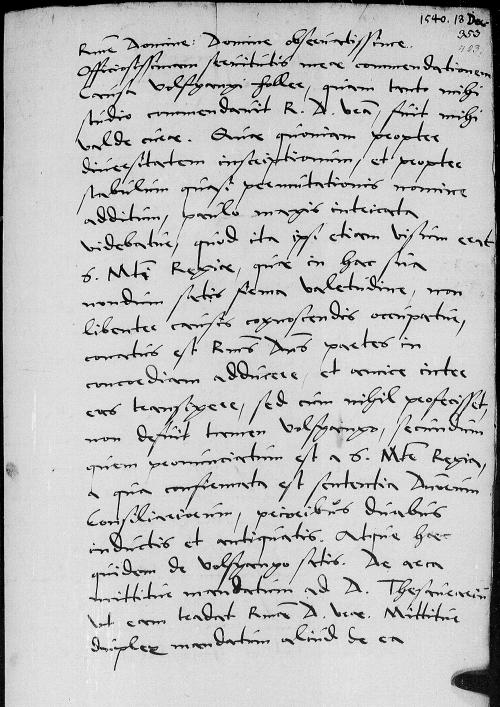 1540. 18 Dec
353
403.
Rme Domine: Domine observatissime.
Officiosissimam servitutis meae commendationem
Causa Volfgangi Holler, quam tanto mihi
studio commendavit R. D. Vra, fuit mihi
valde curae. Quae quoniam propter
diversitatem inscriptionum, et propter
stabulum quasi permutationis nomine
additum, paulo magis intricata
videbatur, quod ita ipsi etiam visum erat
S. Mti Regiae, quae in hac sua
nondum satis firma valetudine, non
libenter causis cognoscendis occupatur,
conatus est Rmus Dns partes in
concordiam adducere, et amice inter
eas transigere, sed cum nihil profecisset,
non defuit tamen Volfgango, secundum
quem pronunciatum est a S. Mte Regia,
a qua confirmata est sententia Dnorum
Consiliariorum, prioribus duabus
inductis et antiquatis. Atque haec
quidem de Volfgango satis. De arca
mittitur mandatum ad D. Thesaurarium
Ut eam tradat Rmae D. Vrae. Mittitur
duplex mandatum aliud de ea